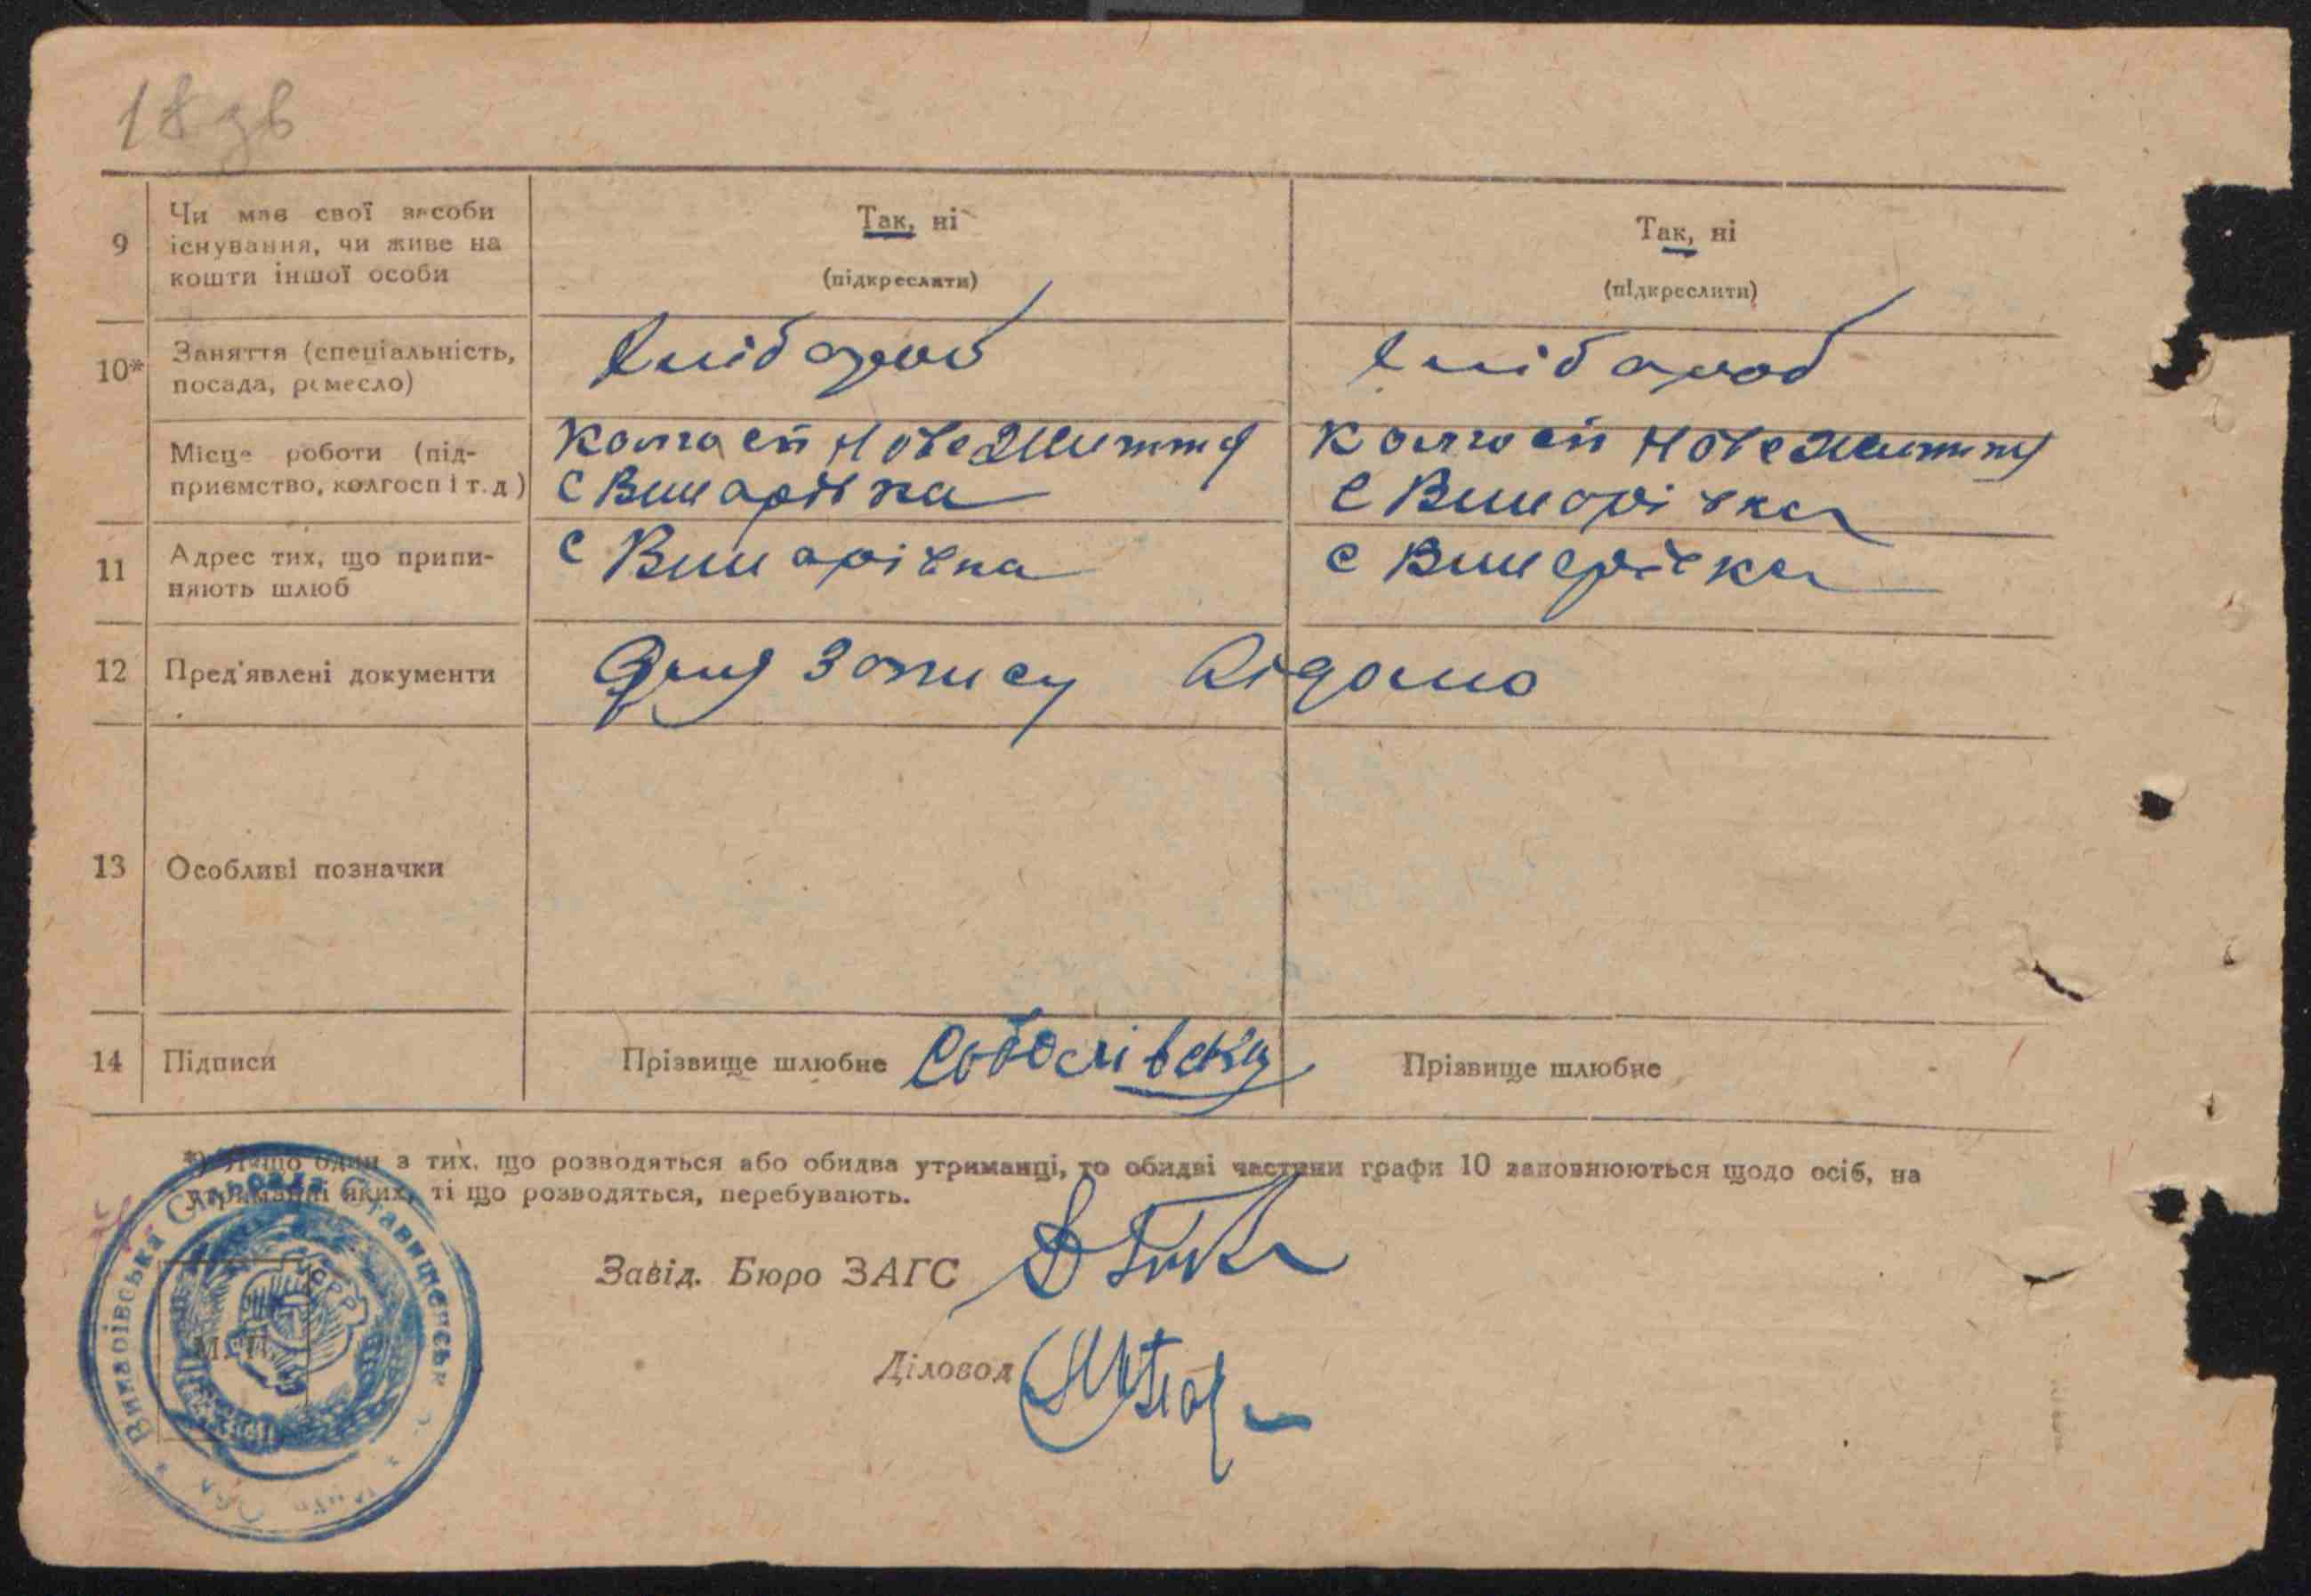 18 зв
9 Чи має свої засоби існування, чи живе на кошти іншої особи
Так, ні
(підкреслити)
Так, ні
(підкреслити)
10* Заняття (спеціальність, посада, ремесло)
Хлібороб
Хлібороб
Місце роботи (підприємство, колгосп і т.д)
Колгосп Нове Життя
с Винарівка
Колгосп Нове Життя
с Винарівка
11 Адрес тих, що припиняють шлюб
с Винарівка
с Винарівка
12 Пред'явлені документи
Для запису відомо
13 Особливі позначки
14 Підписи
Прізвище шлюбне
Прізвище шлюбне
*) Якщо один з тих, що розводяться або обидва утриманці, то обидві частини графи 10 заповнюються щодо осіб, на
утриманні яких, ті що розводяться, перебувають.
Завід. Бюро ЗАГС
Діловод
М. П.
Винарівська Сільрада Ставищенськ
УСРР